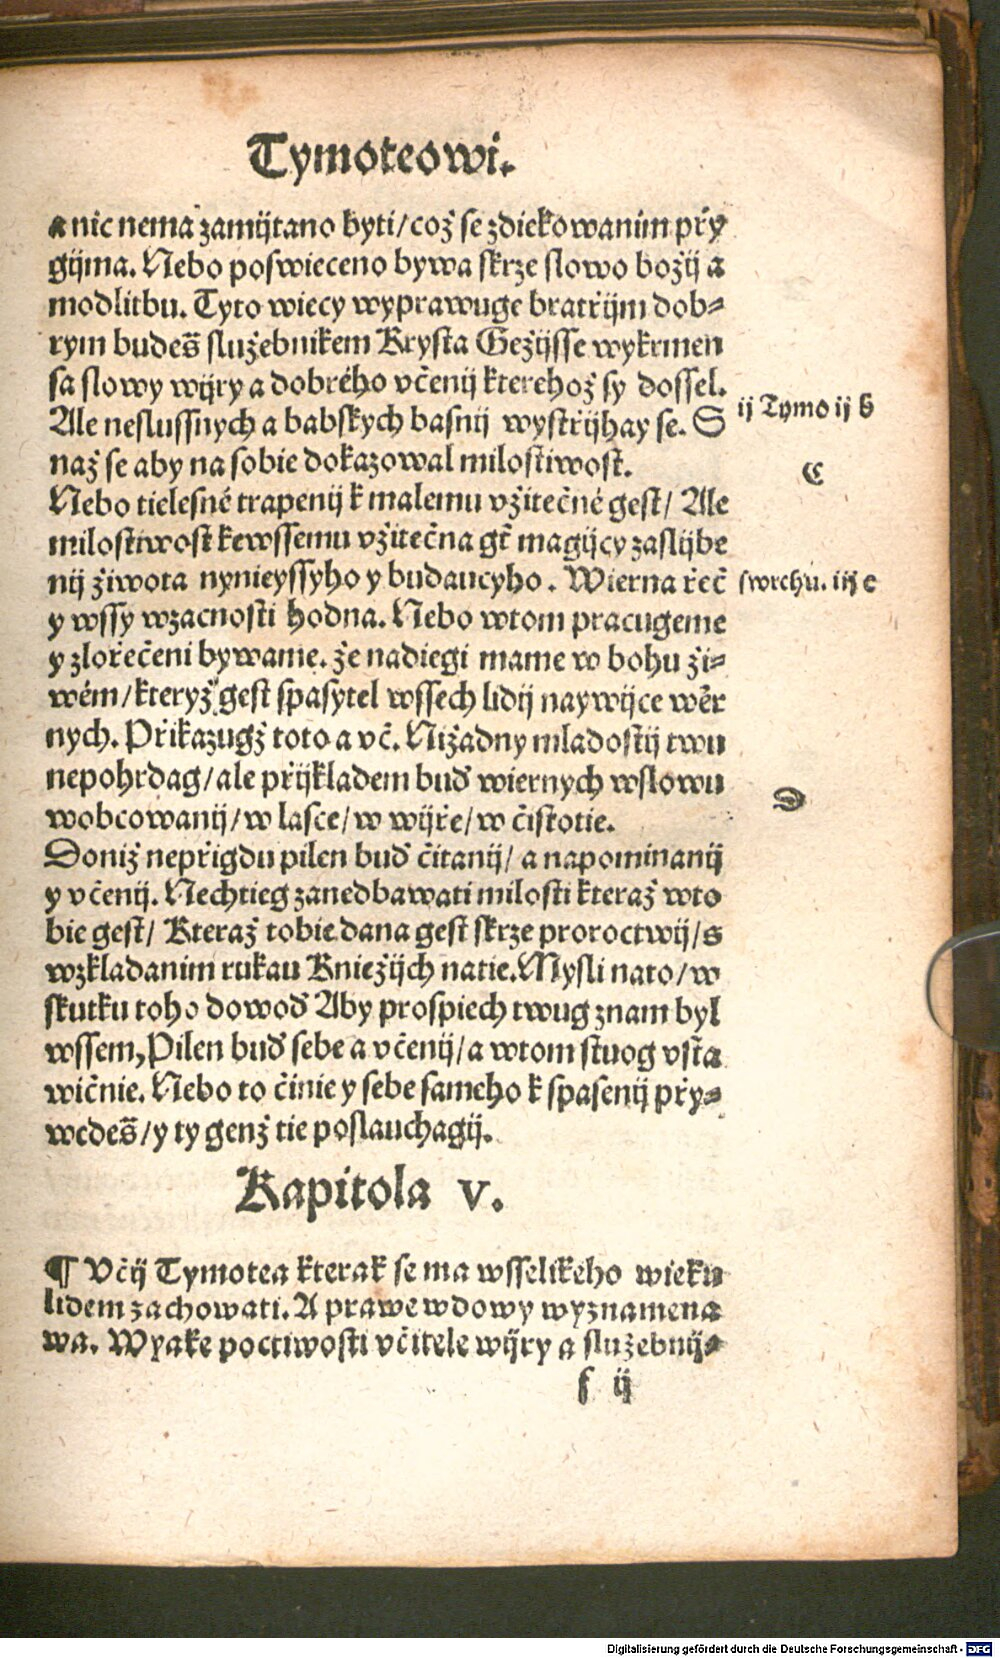 Tymoteowi.
a nic nema zamijtano byti/ coż se zdiekowanim přy
gijma. Nebo poswieceno bywa skrze slowo božij a
modlitbu. Tyto wiecy wyprawuge bratřijm dob⸗
rym budes̃ služebnikem Krysta Gežijsse wykrmen
sa slowy wijry a dobrého včenij kterehož sy dossel.
Ale neslussnych a babskych basnij wystřijhay se. S
naž se aby na sobie dokazowal milostiwost.
Nebo tielesné trapenij k malemu vžitečné gest/ Ale
milostiwost kewssemu vžitečna gt̃ magijcy zaslijbe
nij žiwota nynieyssyho y budaucyho. Wierna řeč
y wssy wzacnosti hodna. Nebo wtom pracugeme
y zlořečeni bywame. že nadiegi mame w bohu ži⸗
wém/ kteryž gest spasytel wssech lidij naywijce wěr
nych. Přikazugž toto a vč. Nižadny mladostij twu
nepohrdag/ ale přijkladem buď wiernych wslowu
wobcowanij/ w lasce/ w wijře/ w čistotie.
Doniž nepřigdu pilen buď čitanij/ a napominanij
y včenij. Nechtieg zanedbawati milosti kteraž wto
bie gest/ Kteraž tobie dana gest skrze proroctwij/ s
wzkladanim rukau Kniežijch natie. Mysli nato/ w
skutku toho dowoď Aby prospiech twug znam byl
wssem, Pilen buď sebe a včenij/ a wtom stuog vsta
wičnie. Nebo to činie y sebe sameho k spasenij přy⸗
wedes̃/ y ty genž tie poslauchagij.
Kapitola v.
¶ Včij Tymotea kterak se ma wsselikeho wieku
lidem zachowati. A prawe wdowy wyznamena
wa. W yake poctiwosti včitele wijry a služebnij⸗
f ij
ij Tymo ij b
C
swrchu. iij c
D
Digitalisierung gefördert durch die Deutsche Forschungsgemeinschaft - DFG